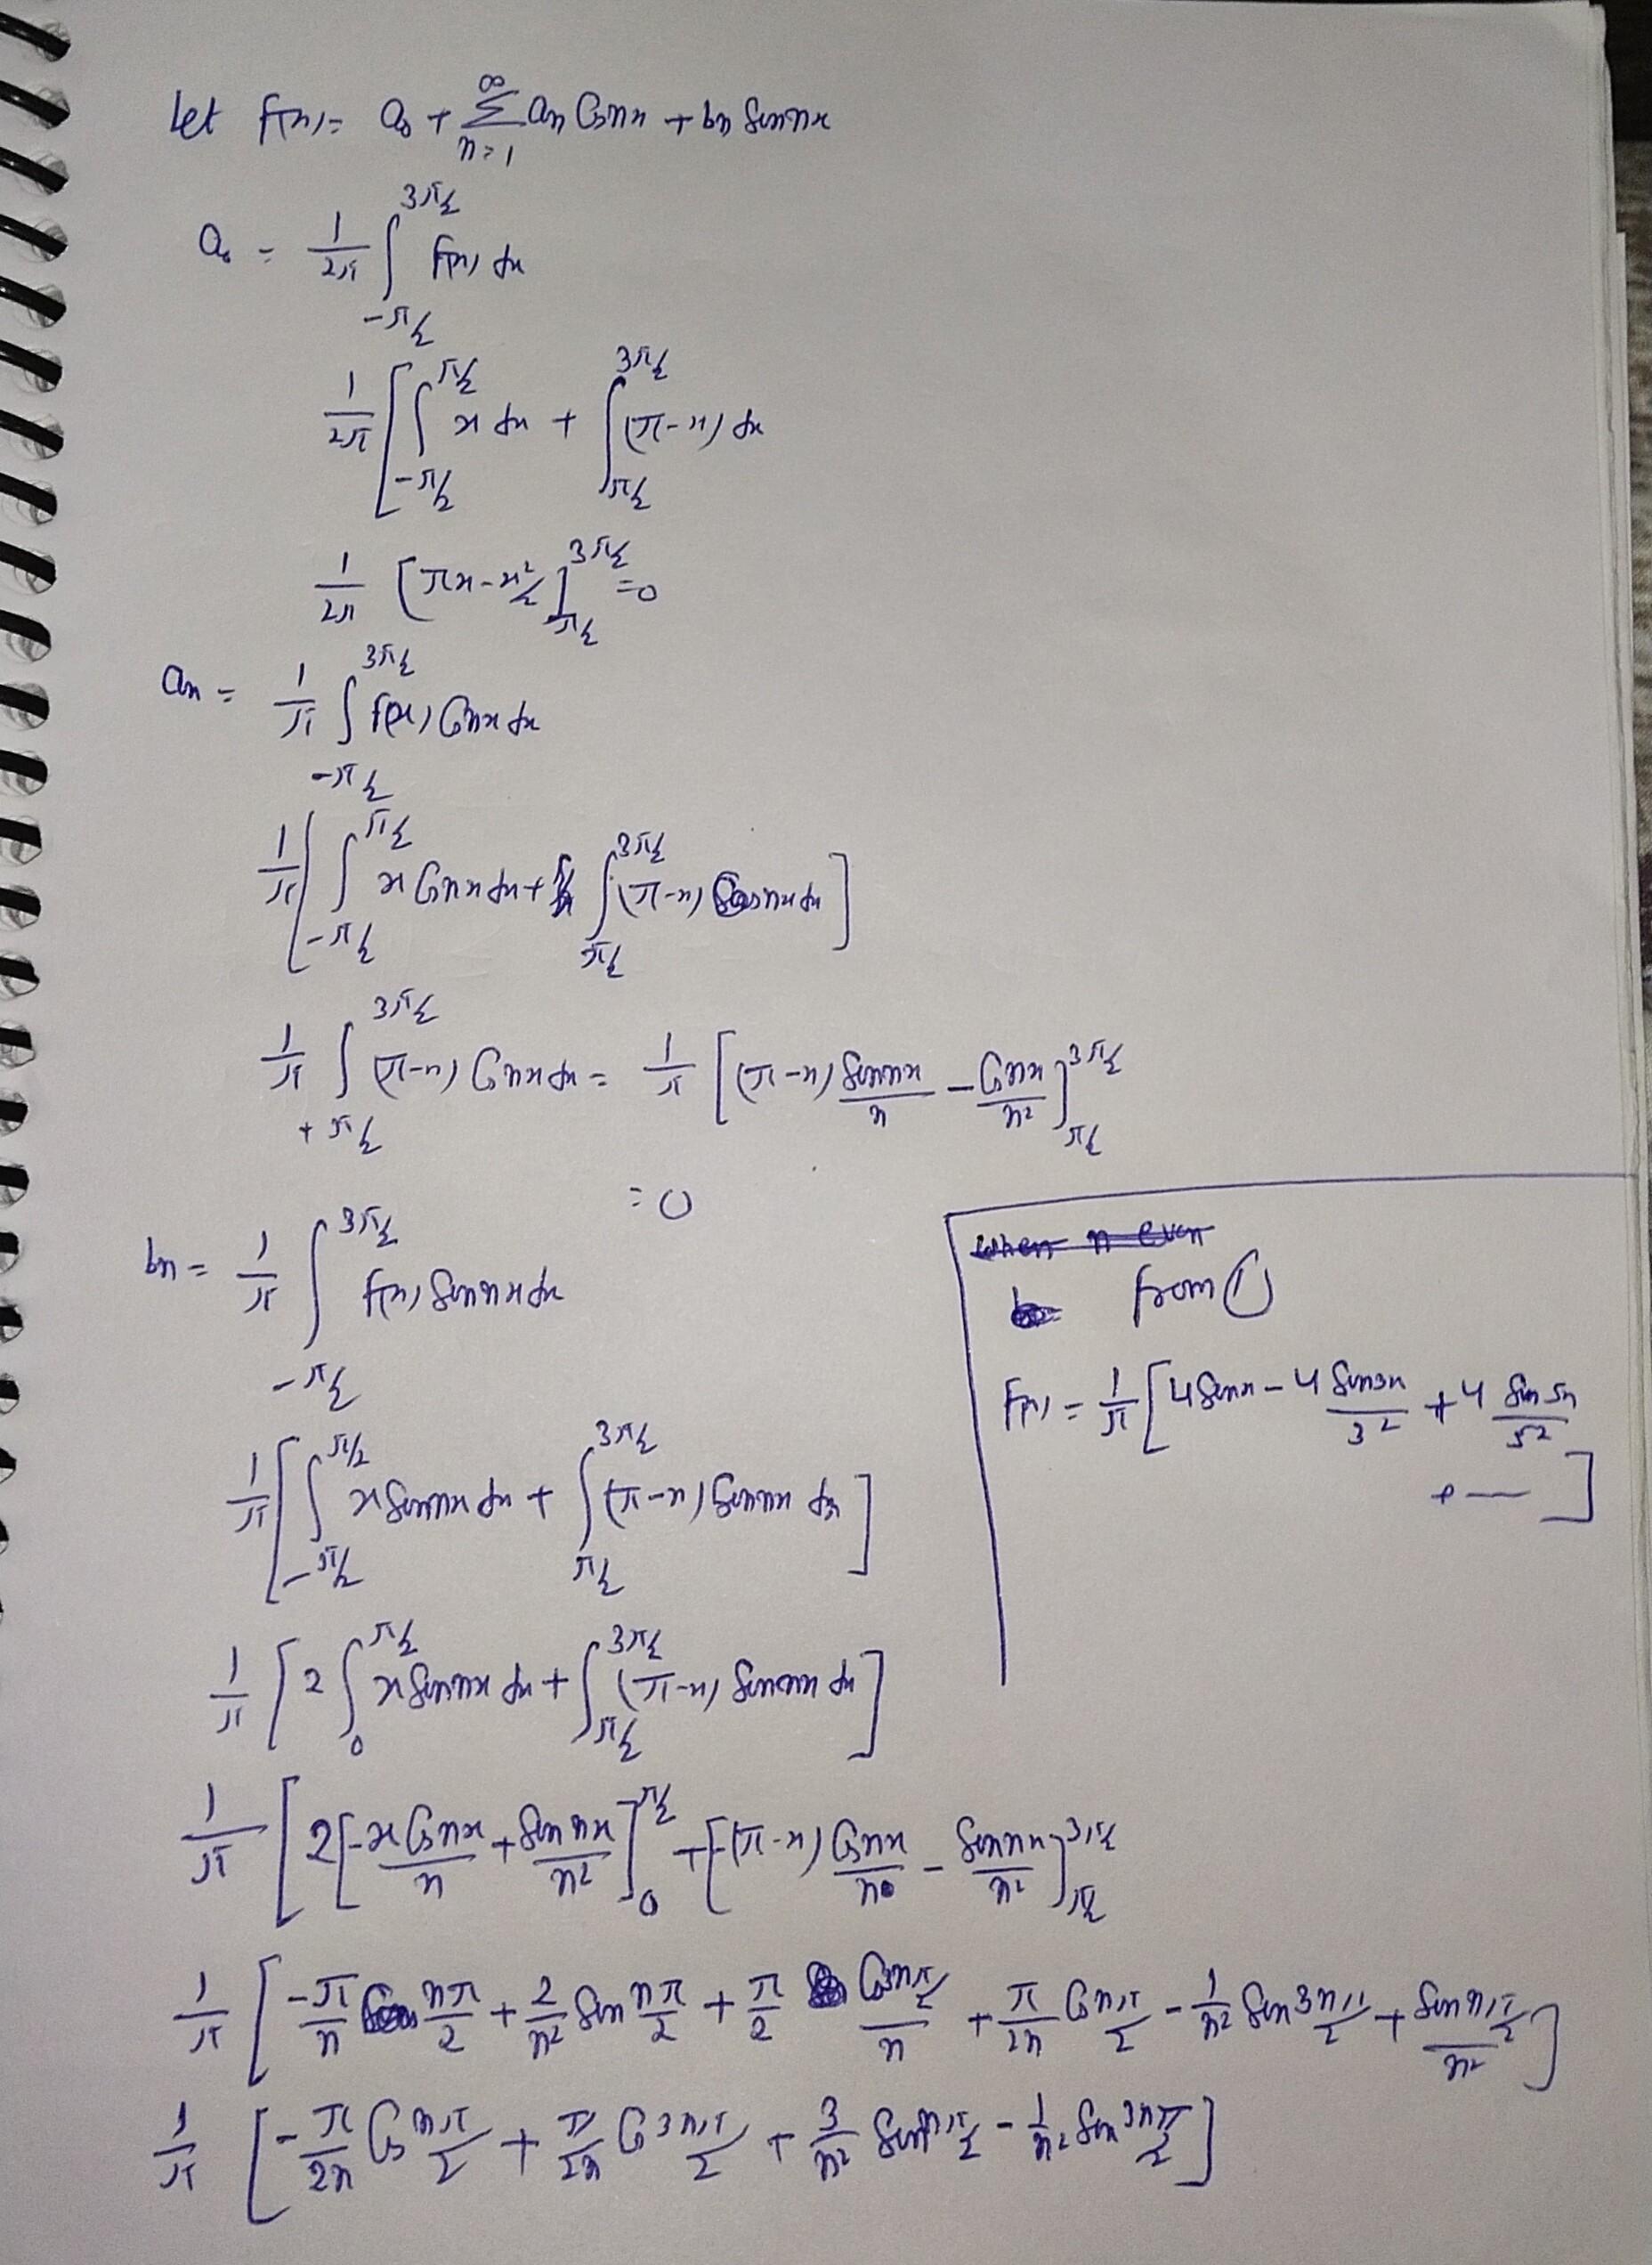 Let f(x) = a₀ + ∑_{n=1}^{∞} aₙ Cosnx + bₙ Sinnx
a₀ = 1/2π ∫_{-π/2}^{3π/2} f(x) dx
1/2π [ ∫_{-π/2}^{π/2} x dx + ∫_{π/2}^{3π/2} (π-x) dx
1/2π [πx - x²/2]_{π/2}^{3π/2} = 0
aₙ = 1/π ∫_{-π/2}^{3π/2} f(x) Cosnx dx
1/π [ ∫_{-π/2}^{π/2} x Cosnx dx + ∫_{π/2}^{3π/2} (π-x) Cosnx dx ]
1/π ∫_{+π/2}^{3π/2} (π-x) Cosnx dx = 1/π [ (π-x) Sinnx/n - Cosnx/n² ]_{π/2}^{3π/2}
= 0
bₙ = 1/π ∫_{-π/2}^{3π/2} f(x) Sinnx dx
1/π [ ∫_{-π/2}^{π/2} x Sinnx dx + ∫_{π/2}^{3π/2} (π-x) Sinnx dx ]
1/π [ 2 ∫_{0}^{π/2} x Sinnx dx + ∫_{π/2}^{3π/2} (π-x) Sinnx dx ]
1/π [ 2[ -x Cosnx/n + Sinnx/n² ]_{0}^{π/2} + [ -(π-x) Cosnx/n - Sinnx/n² ]_{π/2}^{3π/2}
1/π [ -π/n Cos nπ/2 + 2/n² Sin nπ/2 + π/2 Cos3nπ/2/n + π/2n Cos nπ/2 - 1/n² Sin 3nπ/2 + Sin nπ/2/n² ]
1/π [ -π/2n Cos nπ/2 + π/2n Cos 3nπ/2 + 3/n² Sin nπ/2 - 1/n² Sin 3nπ/2 ]
when n even
from ①
f(x) = 1/π [ 4 Sinx - 4 Sin3x/3² + 4 Sin5x/5²
+ — ]